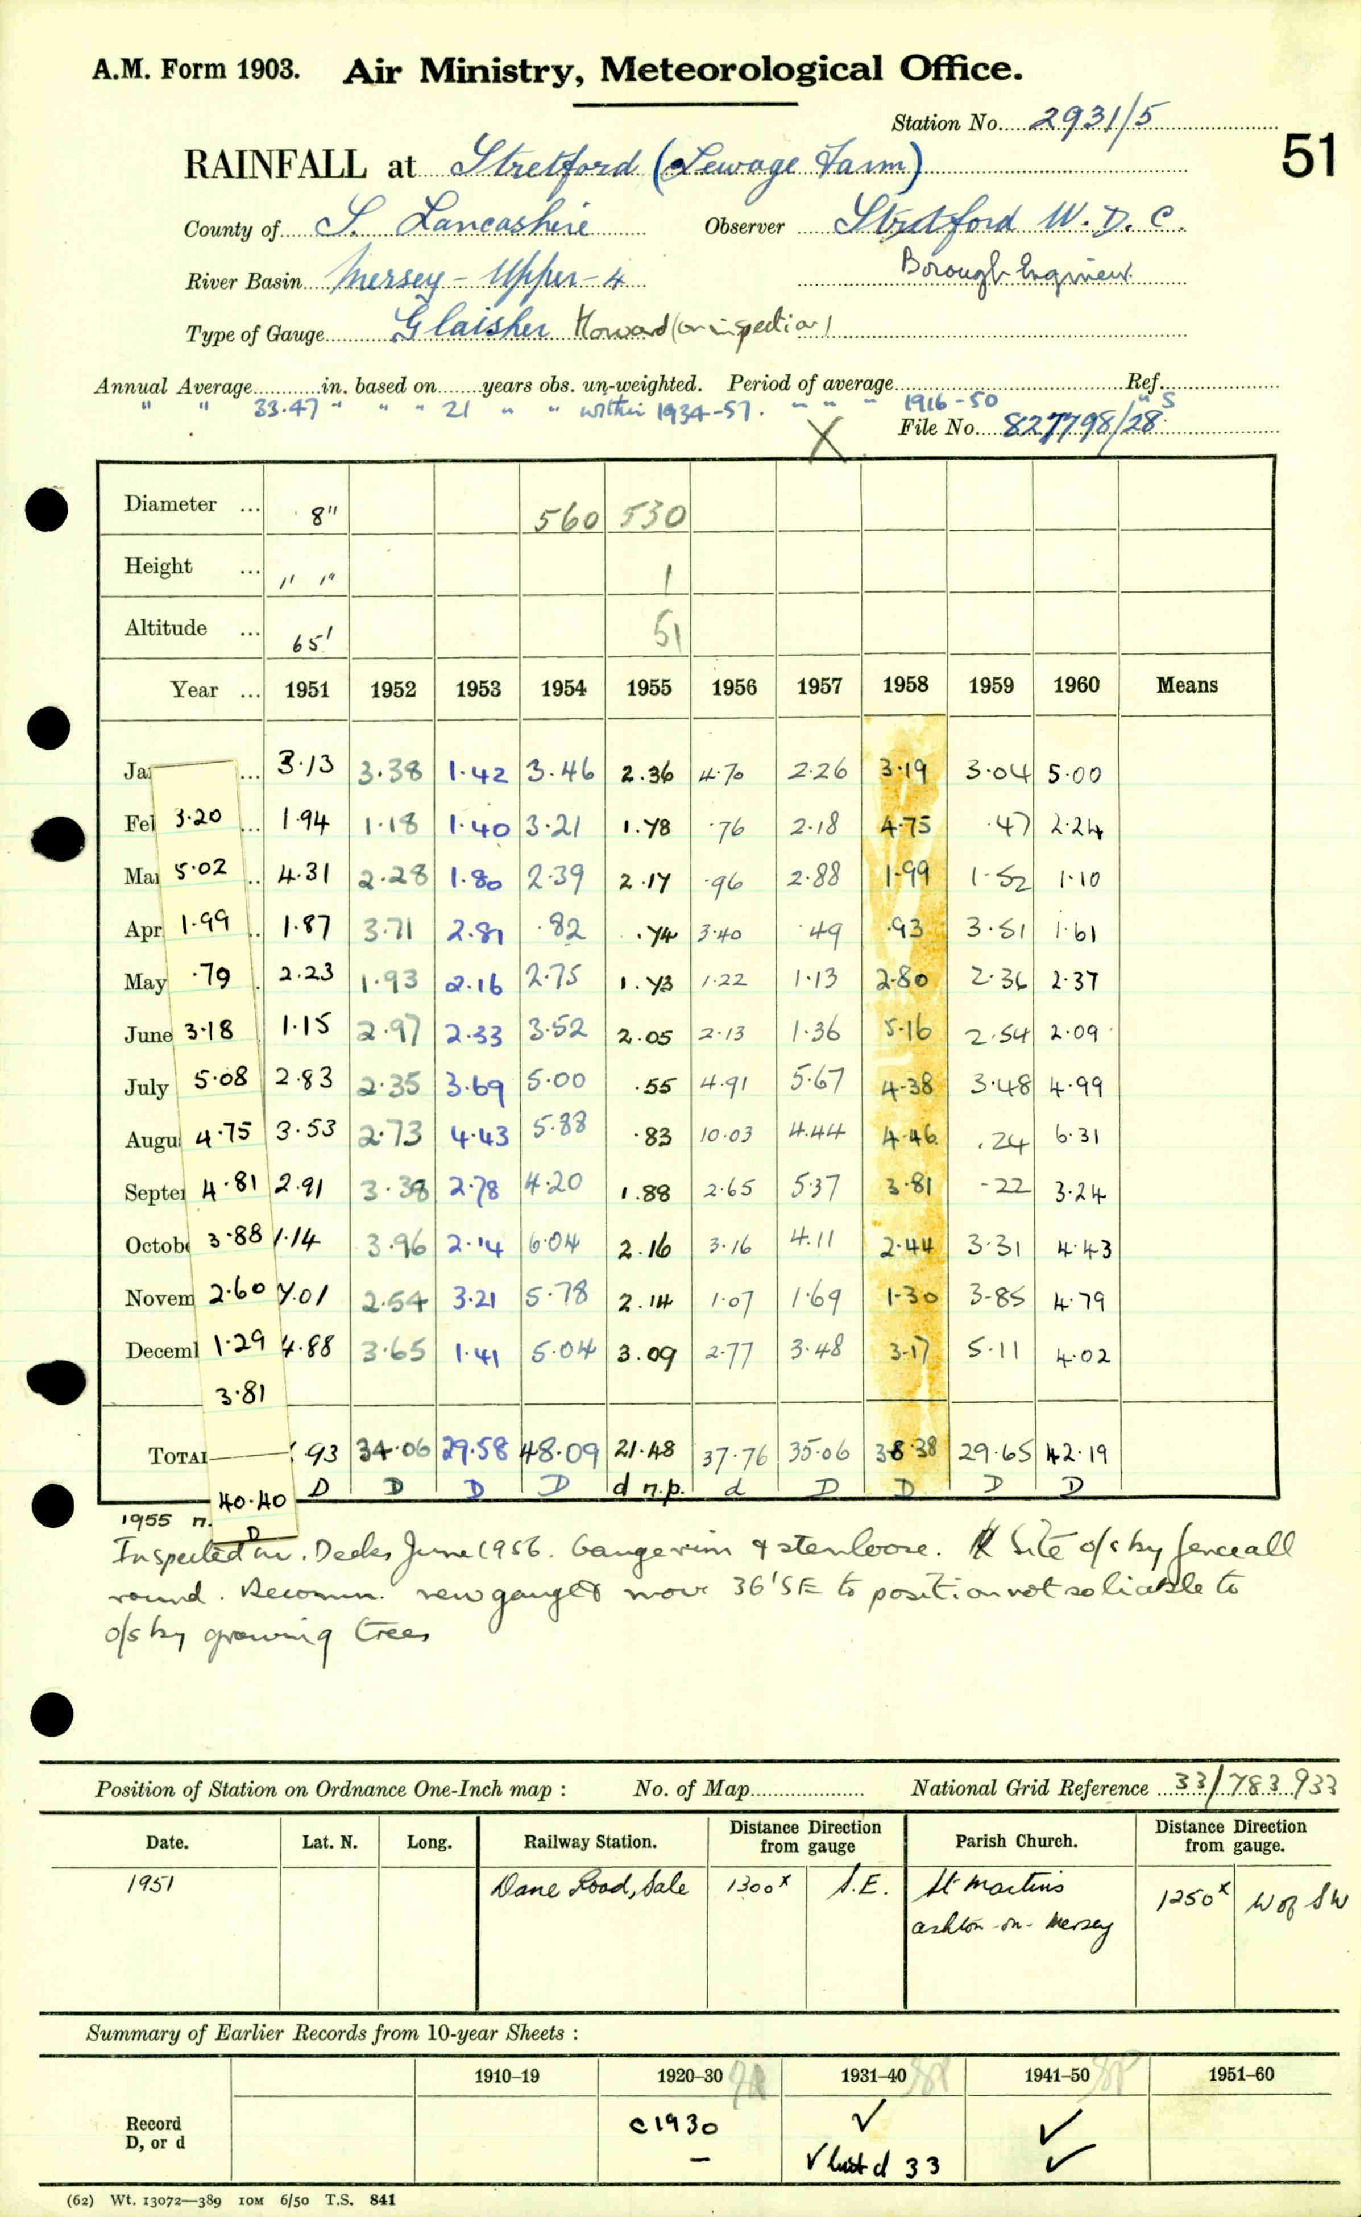 A.M. Form 1903. Air Ministry, Meteorological Office.
Station No. 2931/5
51
RAINFALL at Stretford (Sewage Farm)
County of S. Lancashire Observer Stretford U.D.C.
River Basin Mersey - Upper - 4 Borough Engineer.
Type of Gauge Glaisher Howard (on inspection)
Annual Average in. based on years obs. un-weighted. Period of average Ref.
" " 33.47 " " " 21 " " within 1934-57. " " " 1916-50 " S
X File No. 827798/28
Diameter ... 8" 560 530
Height ... 1' 1" 1
Altitude ... 65' 51
Year ... 1951 1952 1953 1954 1955 1956 1957 1958 1959 1960 Means
Ja ... 3.13 3.38 1.42 3.46 2.36 4.70 2.26 3.19 3.04 5.00
Fe 3.20 ... 1.94 1.18 1.40 3.21 1.78 .76 2.18 4.75 .47 2.24
Ma 5.02 .. 4.31 2.28 1.80 2.39 2.17 .96 2.88 1.99 1.52 1.10
Apr 1.99 .. 1.87 3.71 2.81 .82 .74 3.40 .49 .93 3.51 1.61
May .79 . 2.23 1.93 2.16 2.75 1.73 1.22 1.13 2.80 2.36 2.37
June 3.18 1.15 2.97 2.33 3.52 2.05 2.13 1.36 5.16 2.54 2.09
July 5.08 2.83 2.35 3.69 5.00 .55 4.91 5.67 4.38 3.48 4.99
Augu 4.75 3.53 2.73 4.43 5.88 .83 10.03 4.44 4.46 .24 6.31
Septe 4.81 2.91 3.38 2.78 4.20 1.88 2.65 5.37 3.81 .22 3.24
Octob 3.88 1.14 3.96 2.14 6.04 2.16 3.16 4.11 2.44 3.31 4.43
Novem 2.60 7.01 2.54 3.21 5.78 2.14 1.07 1.69 1.30 3.85 4.79
Decem 1.29 4.88 3.65 1.41 5.04 3.09 2.77 3.48 3.17 5.11 4.02
3.81
TOTAL .93 34.06 29.58 48.09 21.48 37.76 35.06 38.38 29.65 42.19
40.40 D D D D d n.p. d D D D D
D
1955 n.
Inspected Mr. Deeks June 1956. Gauge rim & stem loose. Site o/s by fence all
round. Recomm. new gauge & move 36' SE to position not so liable to
o/s by growing trees
Position of Station on Ordnance One-Inch map : No. of Map National Grid Reference 33/783.933
Date. Lat. N. Long. Railway Station. Distance Direction from gauge Parish Church. Distance Direction from gauge.
1951 Dane Road, Sale 1300x S.E. St Martins 1250x W of SW
ashton-on-Mersey
Summary of Earlier Records from 10-year Sheets :
1910–19 1920–30 1931–40 1941–50 1951–60
Record c1930 ✓ ✓
D, or d – ✓ but d 33 ✓
(62) Wt. 13072—389 10M 6/50 T.S. 841